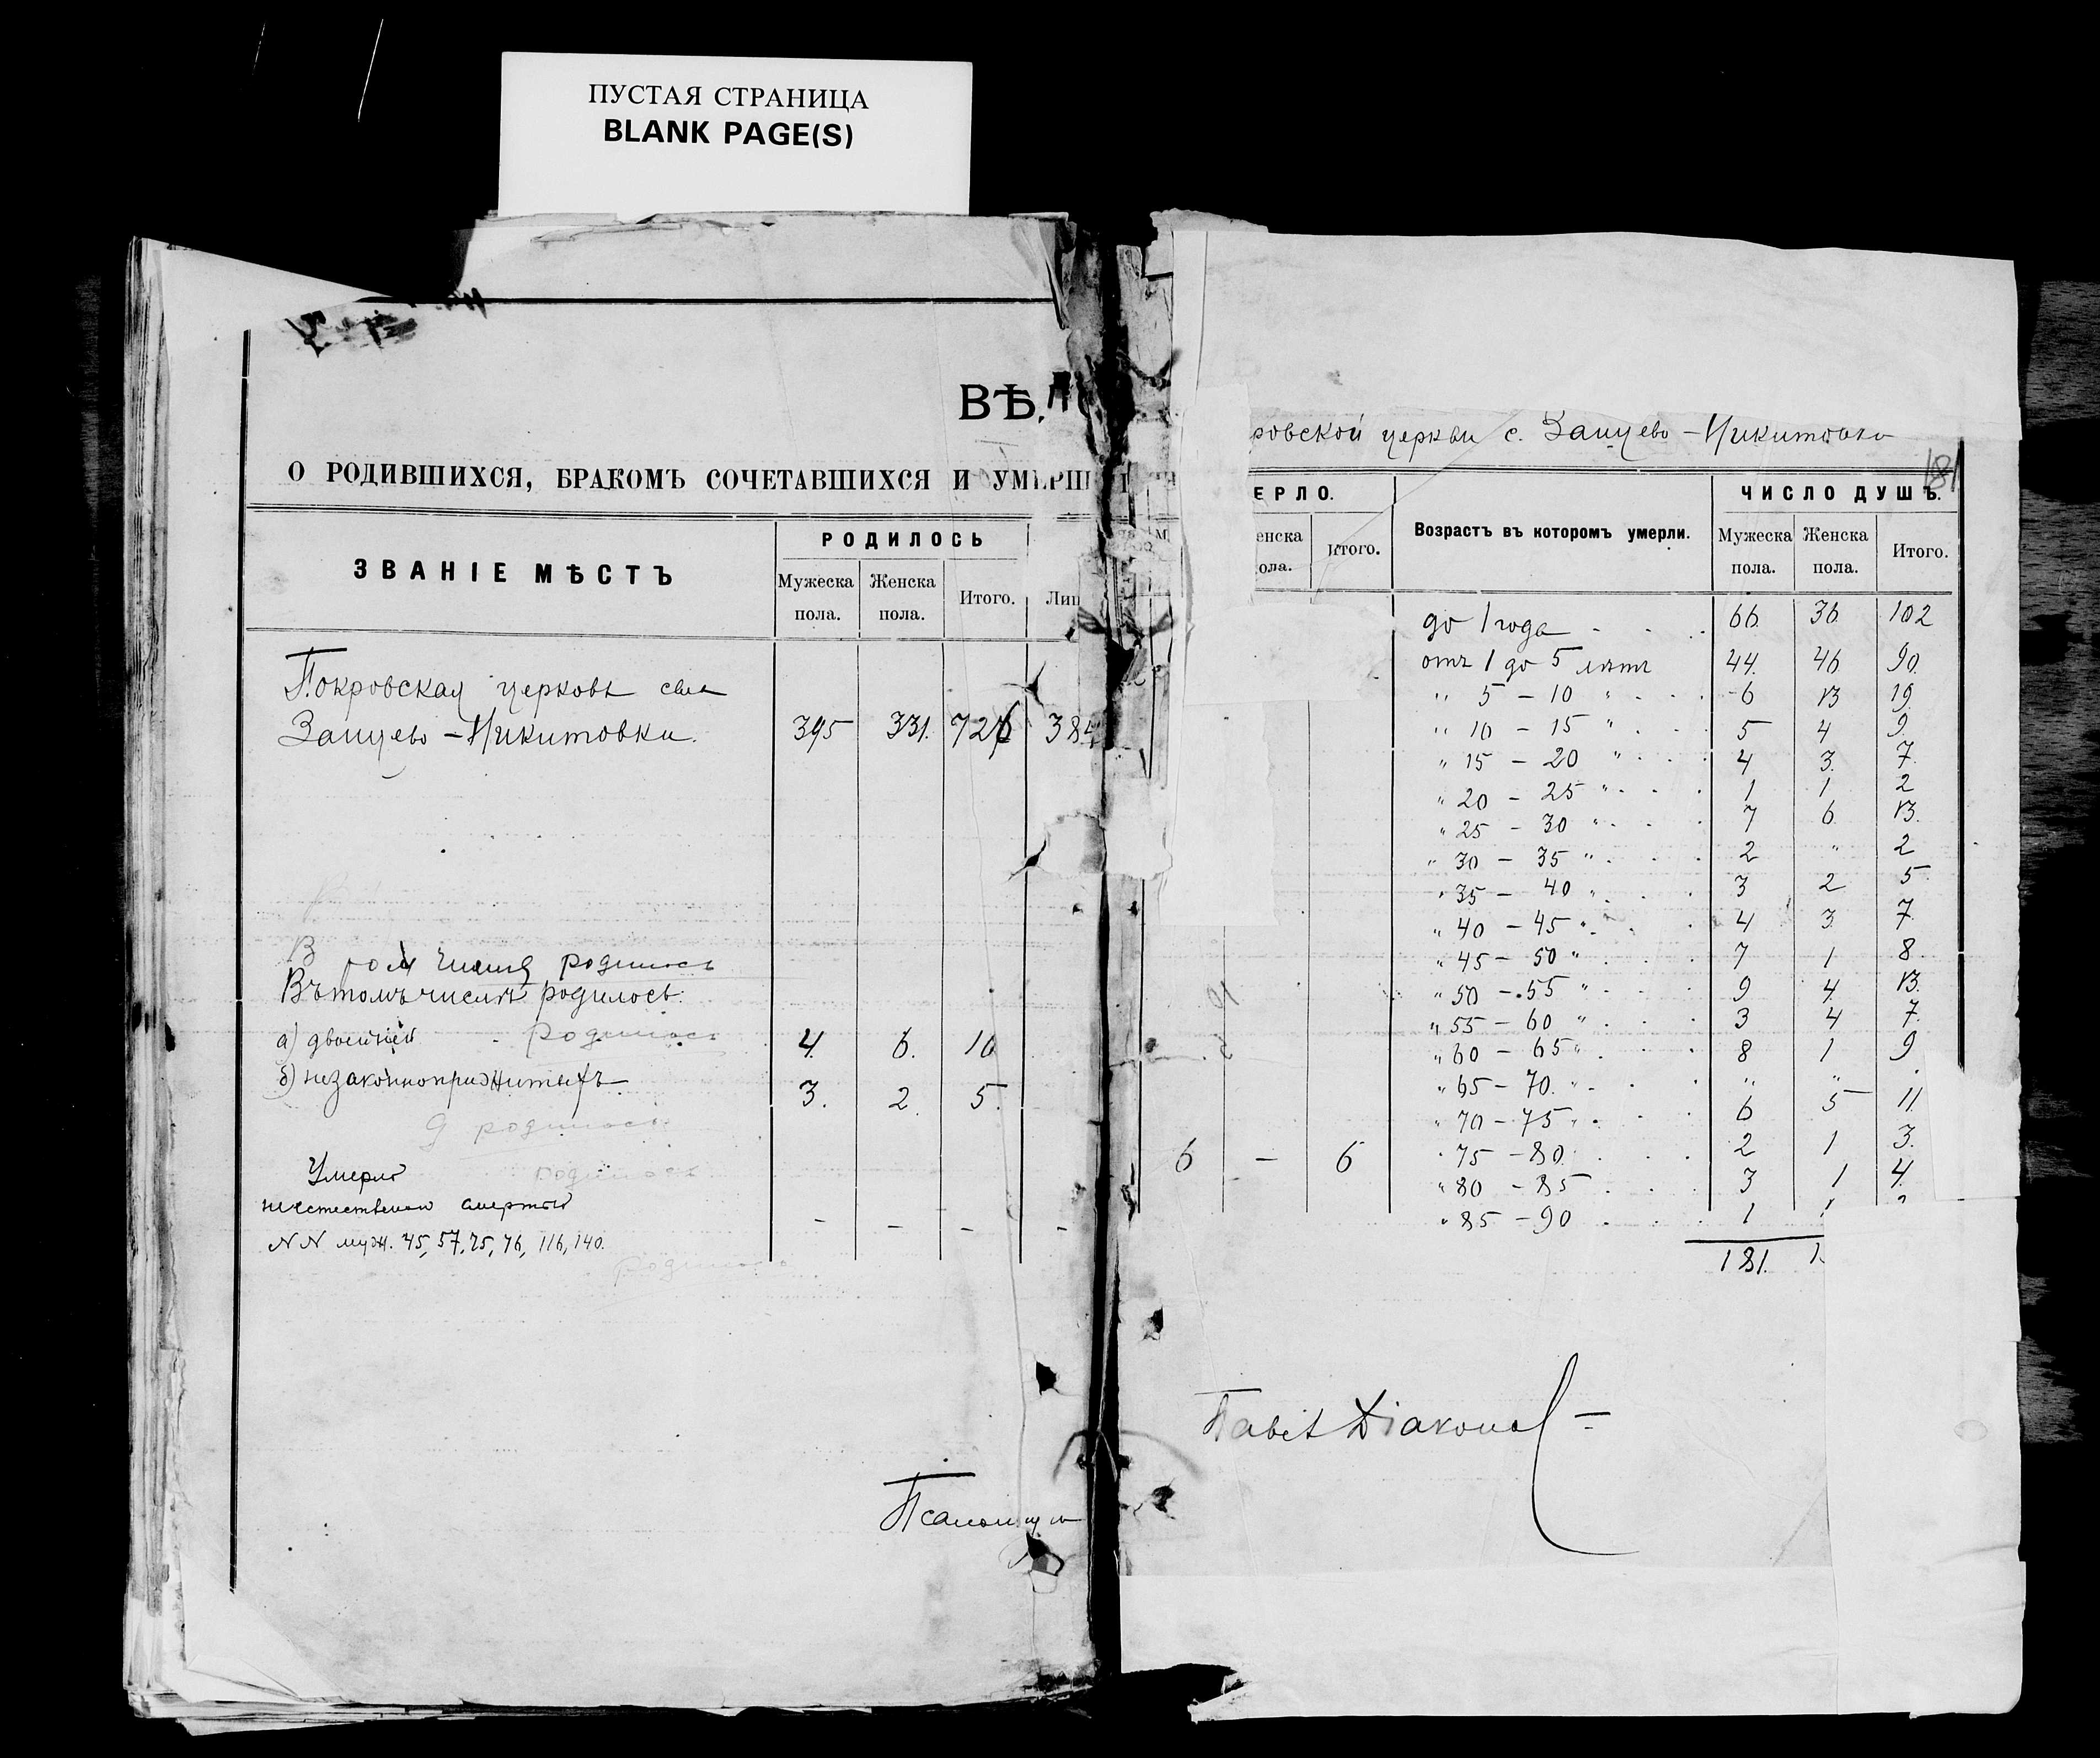 ПУСТАЯ СТРАНИЦА
BLANK PAGE(S)
ВѢ
О РОДИВШИХСЯ, БРАКОМЪ СОЧЕТАВШИХСЯ И УМЕРШ
ЗВАНІЕ МѢСТЪ
РОДИЛОСЬ
Мужеска пола.
Женска пола.
Итого.
Лиц
Покровская церковь села
Зайцево-Никитовки. 395 331. 726 384
Въ томъ числѣ родилось
Въ томъ числѣ родилось:
а) двойней родилось 4. 6. 10
б) незаконноприжитыхъ 3. 2. 5.
родилось
Умерло родилось
неестественной смертью
NN муж. 45, 57, 75, 76, 116, 140. - - - -
родилось
Псаломщи
ровской церкви с. Зайцево-Никитовки
181
ЕРЛО.
енска ола.
Итого.
Возрастъ въ которомъ умерли.
ЧИСЛО ДУШЪ.
Мужеска пола.
Женска пола.
Итого.
до 1 года 66. 36. 102
отъ 1 до 5 лѣтъ 44. 46 90.
" 5 - 10 " 6 13 19.
" 10 - 15 " 5 4 9.
" 15 - 20 " 4 3. 7.
" 20 - 25 " 1 1 2
" 25 - 30 " 7 6. 13.
" 30 - 35 " 2 " 2
" 35 - 40 " 3 2 5.
" 40 - 45 " 4 3. 7.
" 45 - 50 " 7 1 8.
" 50 - 55 " 9 4. 13.
" 55 - 60 " 3 4 7.
" 60 - 65 " 8 1 9
" 65 - 70. " " "
" 70 - 75 " 6 5 11.
6 - 6 " 75 - 80. 2 1 3.
" 80 - 85 3 1 4.
" 85 - 90 1
181. 1
Павелъ Діаконов